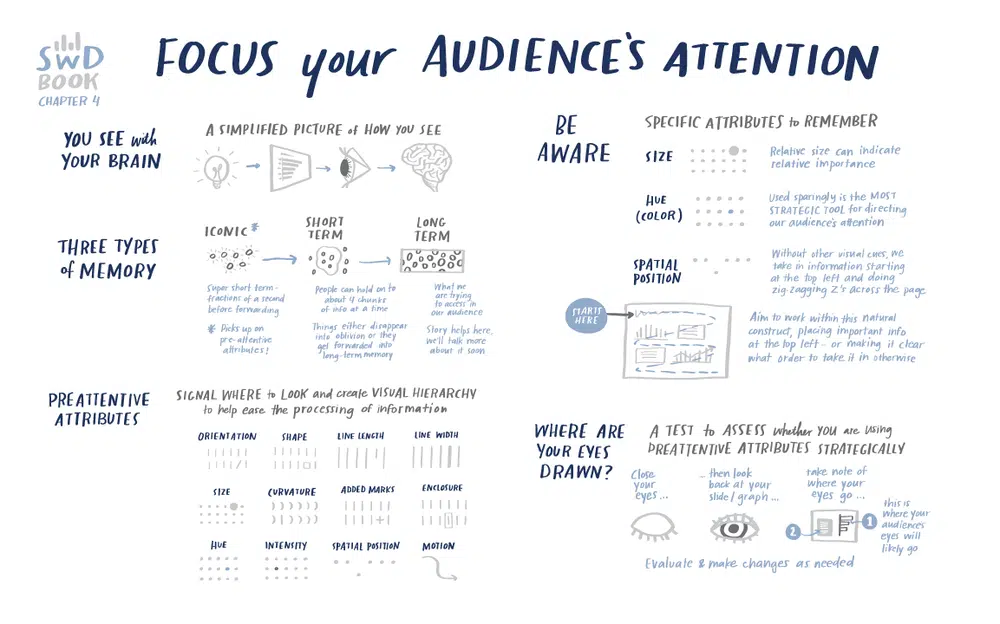 SWD
BOOK
CHAPTER 4
FOCUS your AUDIENCE'S ATTENTION
YOU SEE with
YOUR BRAIN
A SIMPLIFIED PICTURE of HOW YOU SEE
THREE TYPES
of MEMORY
ICONIC *
Super short term-
fractions of a second
before forwarding
* Picks up on
pre-attentive
attributes!
SHORT
TERM
People can hold on to
about 4 chunks
of info at a time
Things either disappear
into oblivion or they
get forwarded into
long-term memory
LONG
TERM
What we
are trying
to access in
our audience
Story helps here,
we'll talk more
about it soon
PREATTENTIVE
ATTRIBUTES
SIGNAL WHERE to LOOK and create VISUAL HIERARCHY
to help ease the processing of information
ORIENTATION
SHAPE
LINE LENGTH
LINE WIDTH
SIZE
CURVATURE
ADDED MARKS
ENCLOSURE
HUE
INTENSITY
SPATIAL POSITION
MOTION
BE
AWARE
SPECIFIC ATTRIBUTES to REMEMBER
SIZE
Relative size can indicate
relative importance
HUE
(COLOR)
Used sparingly is the MOST
STRATEGIC TOOL for directing
our audience's attention
SPATIAL
POSITION
Without other visual cues, we
take in information starting
at the top left and doing
zig-zagging Z's across the page
STARTS
HERE
Aim to work within this natural
construct, placing important info
at the top left - or making it clear
what order to take it in otherwise
WHERE ARE
YOUR EYES
DRAWN?
A TEST to ASSESS whether YOU are USING
PREATTENTIVE ATTRIBUTES STRATEGICALLY
Close
your
eyes...
... then look
back at your
slide/graph ...
take note of
where your
eyes go ...
2
1
this is
where your
audiences
eyes will
likely go
Evaluate & make changes as needed